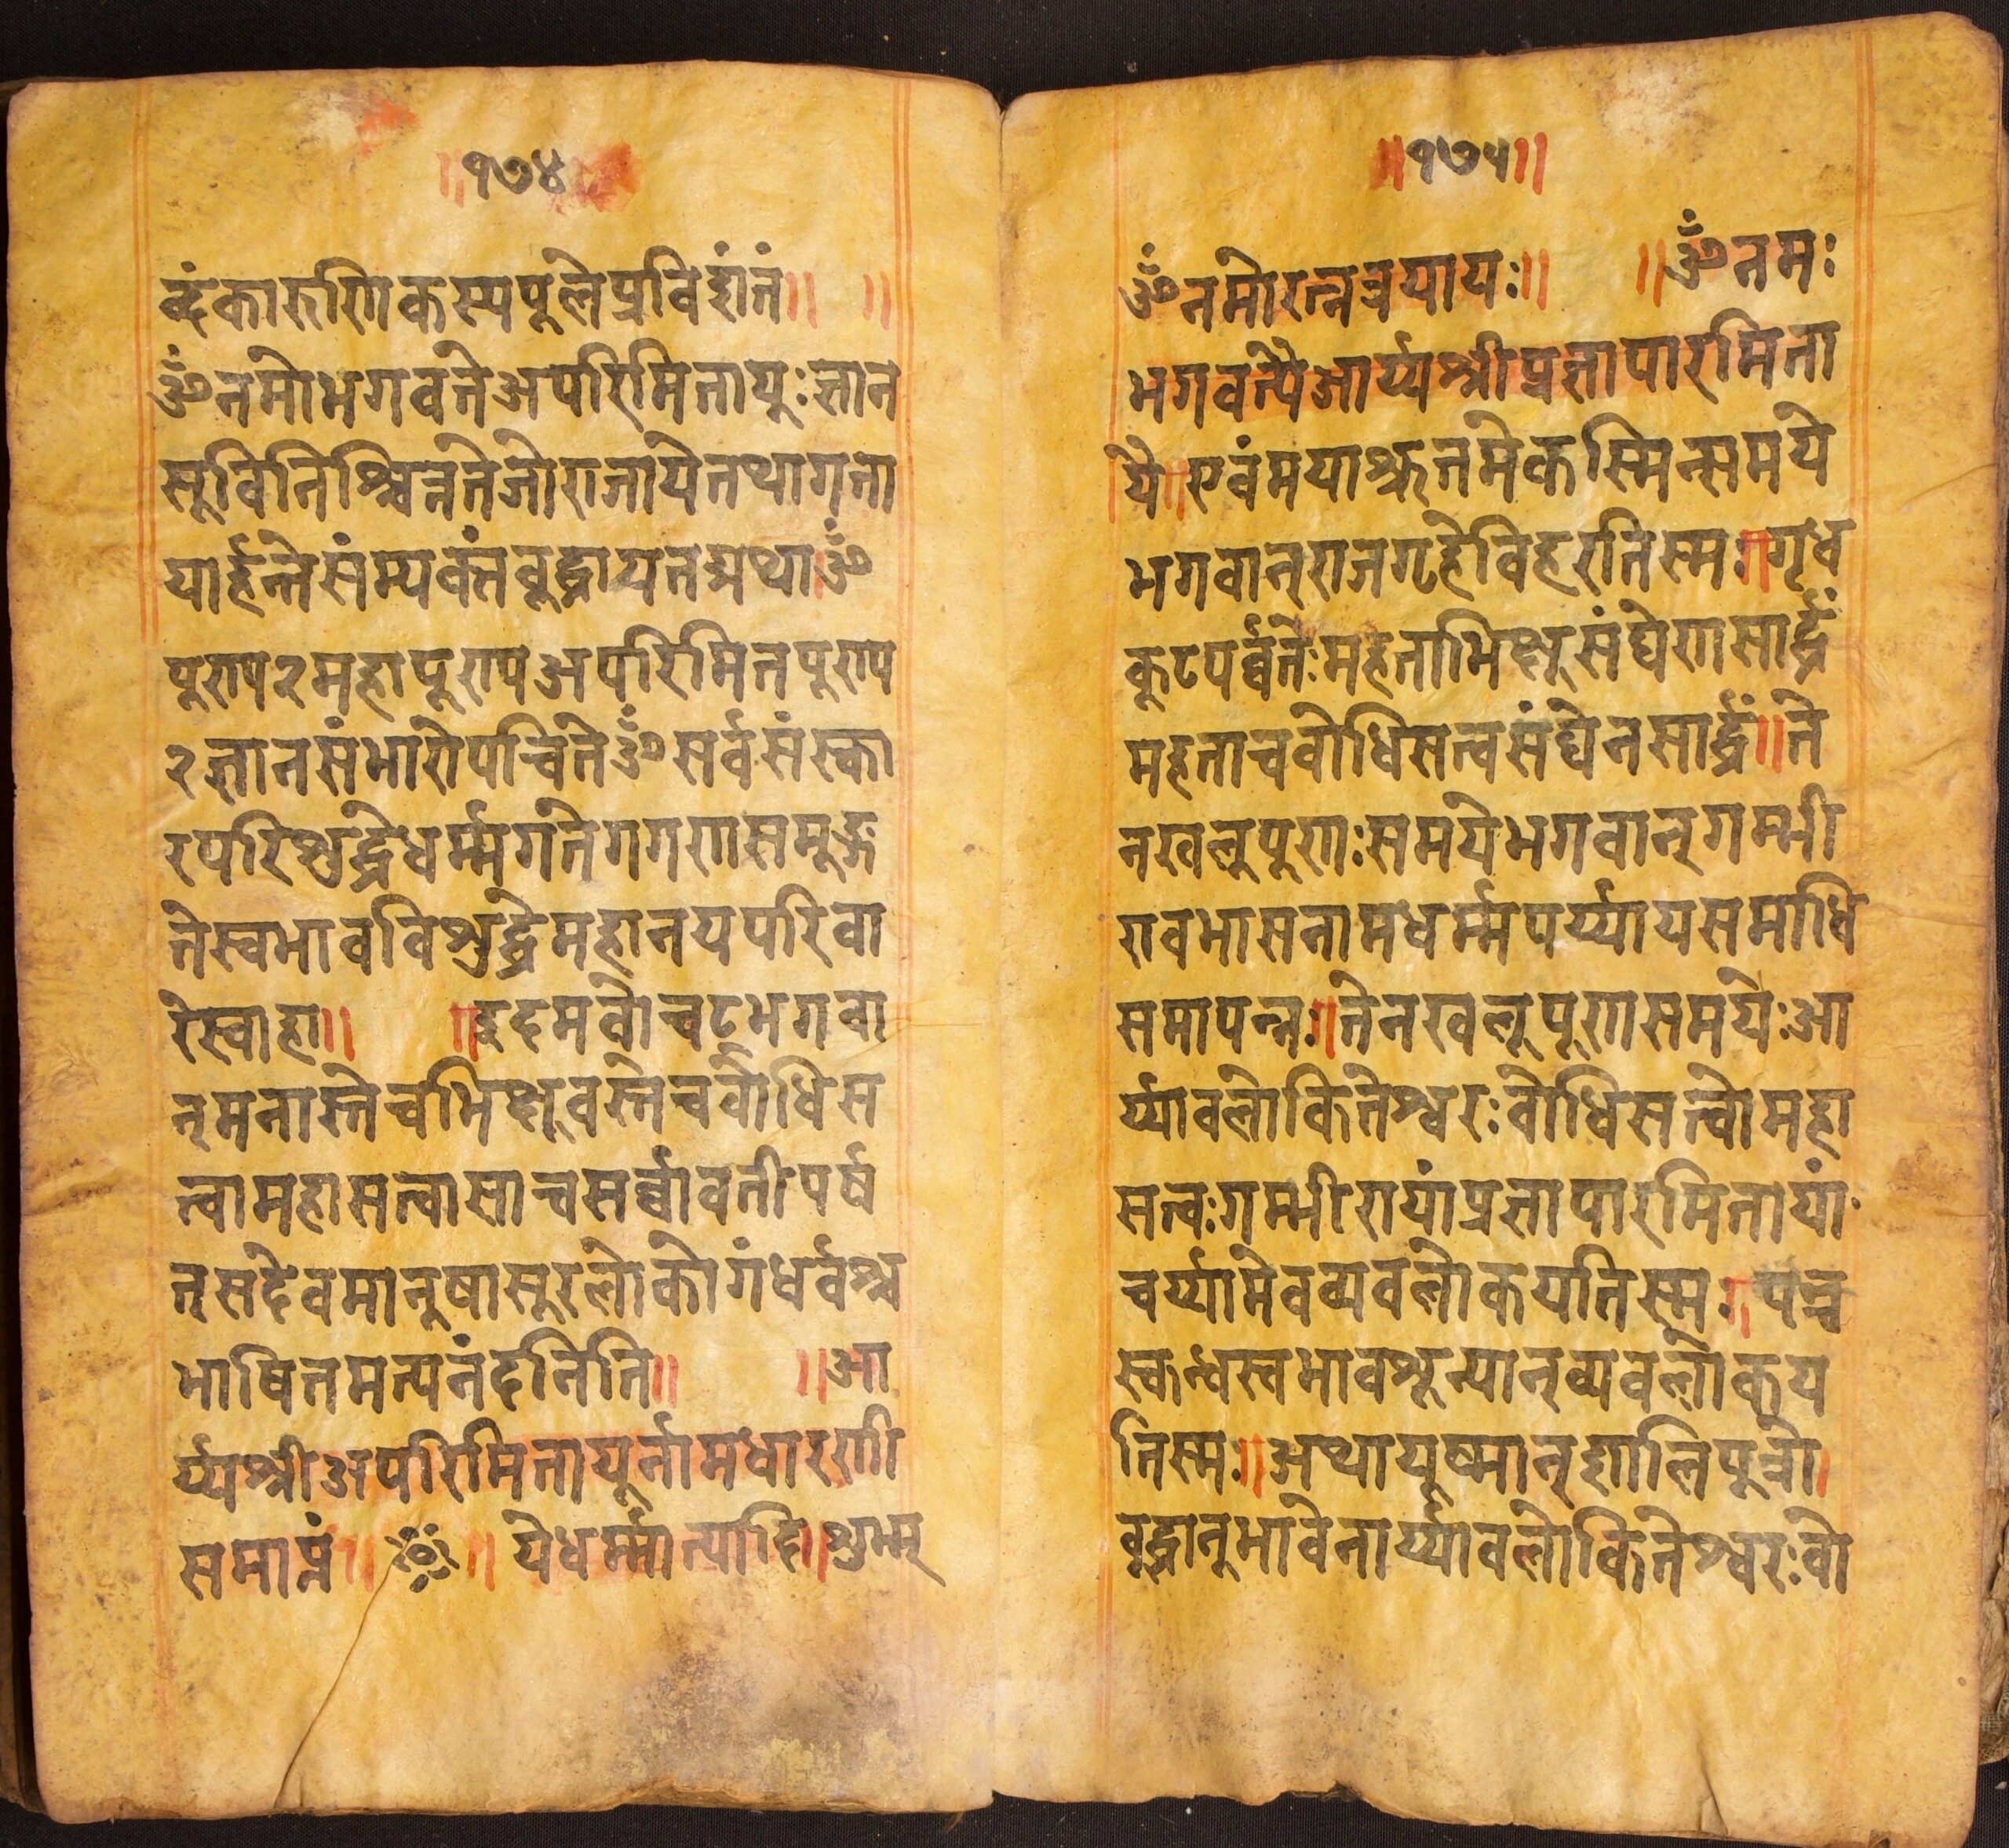 ॥१७४॥
ब्दंकारुणिकस्यपूलेप्रविशंतं॥ ॥
ॐनमोभगवतेअपरिमितायुःज्ञान
सूविनिश्चितेतेजोराजायेतथागता
यार्हन्तेसंम्यक्तंबूद्धायतद्यथा।ॐ
पुराप२महापूरापअपरिमितपुराप
२ज्ञानसंभारोपचितेॐसर्वसंस्का
रपरिशुद्धेधर्म्मगतेगगणसमूङ्ग
तेस्वभावविशुद्धेमहानयपरिवा
रेस्वाहा॥ ॥इदमवोचद्भगवा
न्मनास्तेचभिक्षूवस्तेचवोधिस
त्वामहासत्वासाचसर्व्वावतीपर्ष
त्सदेवमानुषासूरलोकोगंधर्वश्च
भाषितमत्यनंदतिति॥ ॥आ
र्य्यश्रीअपरिमितायूर्नामधारणी
समाप्तं॥ ॥ येधर्म्मात्यादि॥शुभम्
॥१७५॥
ॐनमोरत्नत्रयायः॥ ॥ॐनमः
भगवत्यैआर्य्यश्रीप्रज्ञापारमिता
यै॥एवंमयाश्रुतमेकस्मिन्समये
भगवान्राजगृहेविहरतिस्मः॥गृध
कूटपर्व्वतेःमहताभिक्षूसंघेणसार्द्धं
महताचवोधिसत्वसंघेनसार्द्धं॥ते
नखलुपुणःसमयेभगवान्गम्भी
रावभासनामधर्म्मपर्य्यायसमाधि
समापन्नः॥तेनखलूपूणसमयेःआ
र्य्यावलोकितेश्वरःवोधिसत्वोमहा
सत्वःगम्भीरायांप्रज्ञापारमितायां
चर्य्यामेवव्यवलोकयतिस्मः॥पञ्च
स्कन्धस्वभावशून्यान्व्यवलोकय
तिस्मः॥अथायूष्मान्शालिपुत्रो।
वूद्धानुभावेनार्य्यावलोकितेश्वरःवो